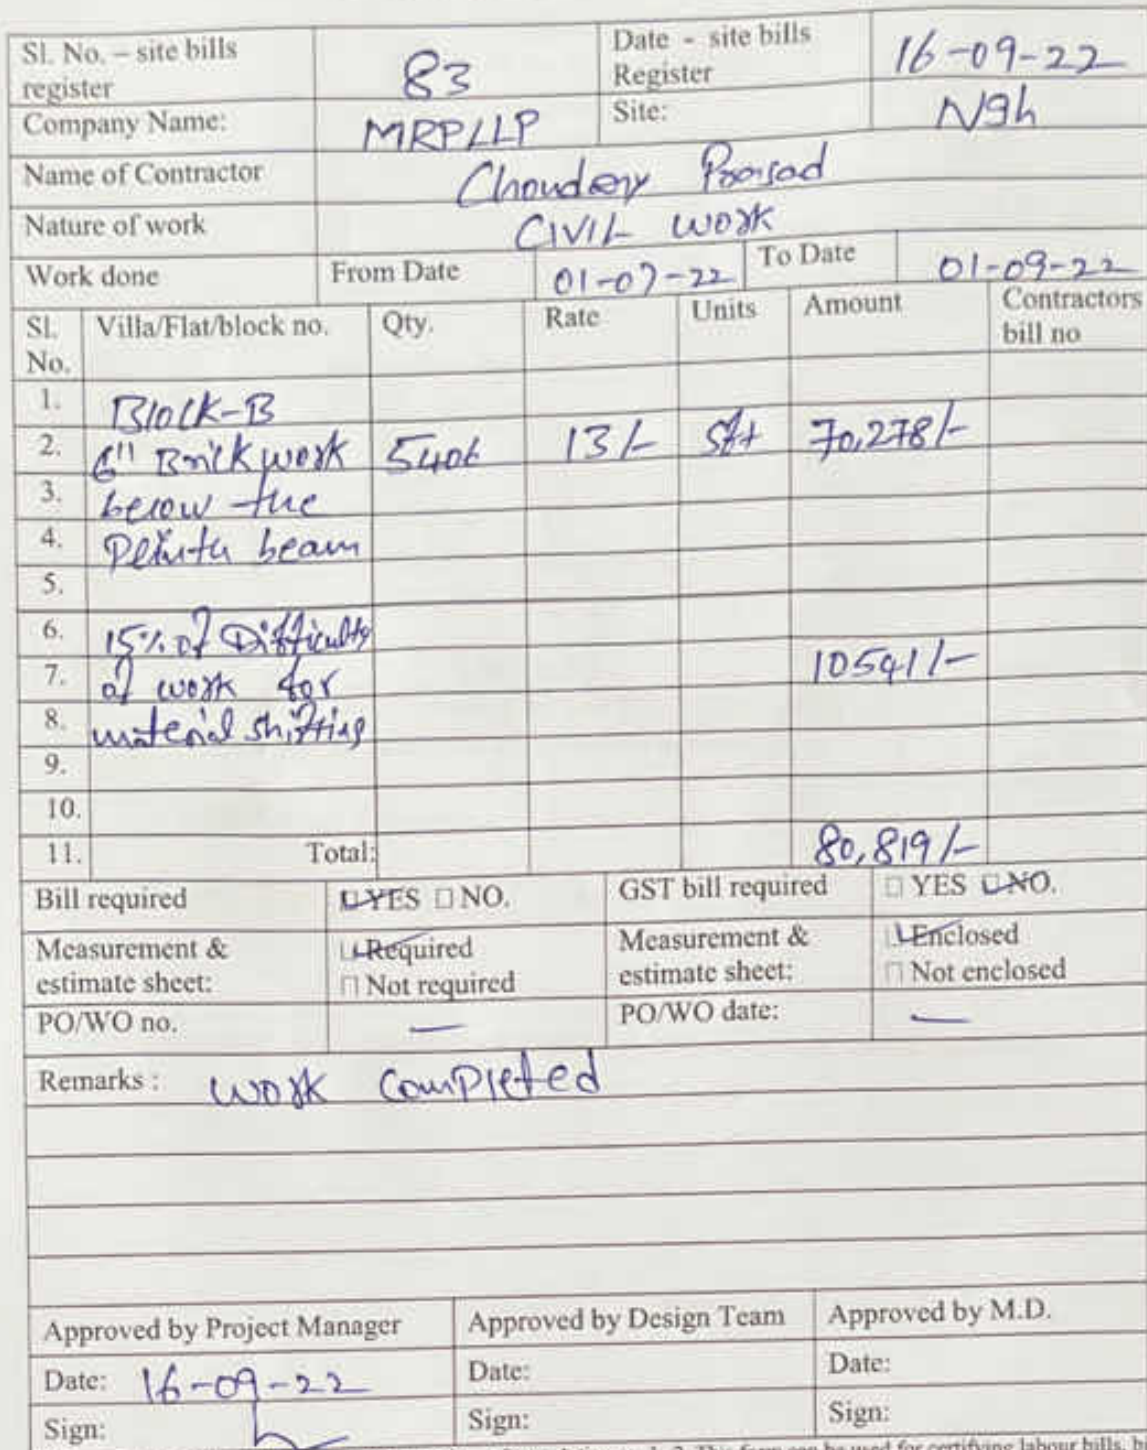 Sl. No. – site bills register 83 Date - site bills Register 16-09-22
Company Name: MRPLLP Site: Ngh
Name of Contractor Choudery Prasad
Nature of work CIVIL work
Work done From Date 01-07-22 To Date 01-09-22
Sl. No. Villa/Flat/block no. Qty. Rate Units Amount Contractors bill no
1. Block-B
2. 6" Brick work 5406 13/- Sft 70,278/-
3. below the
4. beam
5.
6. 15% of Difficulty
7. of work for 10541/-
8. material shifting
9.
10.
11. Total: 80,819/-
Bill required ☑ YES ☐ NO. GST bill required ☐ YES ☑ NO.
Measurement & estimate sheet: ☑ Required ☐ Not required Measurement & estimate sheet: ☑ Enclosed ☐ Not enclosed
PO/WO no. — PO/WO date: —
Remarks : work Completed
Approved by Project Manager Approved by Design Team Approved by M.D.
Date: 16-09-22 Date: Date:
Sign: Sign: Sign:
This form can be used for certifying labour bills,